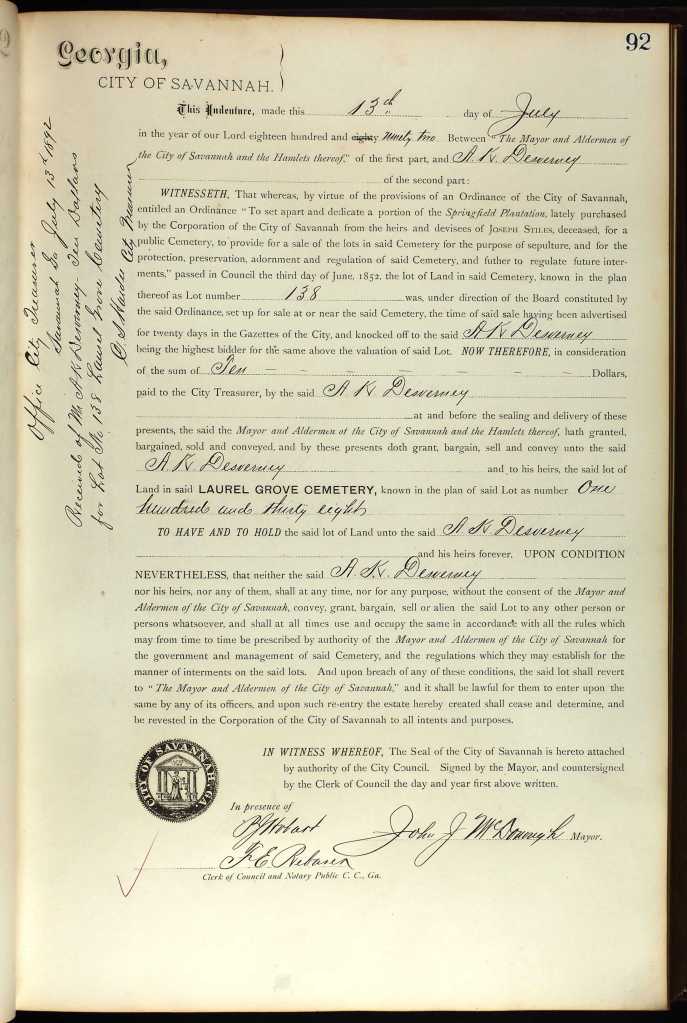 92
Georgia,
CITY OF SAVANNAH.
This Indenture, made this 13th day of July
in the year of our Lord eighteen hundred and eighty Ninety two Between "The Mayor and Aldermen of
the City of Savannah and the Hamlets thereof," of the first part, and A. K. Desverney
of the second part:
WITNESSETH, That whereas, by virtue of the provisions of an Ordinance of the City of Savannah,
entitled an Ordinance "To set apart and dedicate a portion of the Springfield Plantation, lately purchased
by the Corporation of the City of Savannah from the heirs and devisees of JOSEPH STILES, deceased, for a
public Cemetery, to provide for a sale of the lots in said Cemetery for the purpose of sepulture, and for the
protection, preservation, adornment and regulation of said Cemetery, and futher to regulate future inter-
ments," passed in Council the third day of June, 1852, the lot of Land in said Cemetery, known in the plan
thereof as Lot number 138 was, under direction of the Board constituted by
the said Ordinance, set up for sale at or near the said Cemetery, the time of said sale having been advertised
for twenty days in the Gazettes of the City, and knocked off to the said A K Desverney
being the highest bidder for the same above the valuation of said Lot. NOW THEREFORE, in consideration
of the sum of Ten — — — — — — Dollars,
paid to the City Treasurer, by the said A K Desverney
at and before the sealing and delivery of these
presents, the said the Mayor and Aldermen of the City of Savannah and the Hamlets thereof, hath granted,
bargained, sold and conveyed, and by these presents doth grant, bargain, sell and convey unto the said
A. K. Desverney and to his heirs, the said lot of
Land in said LAUREL GROVE CEMETERY, known in the plan of said Lot as number One
hundred and thirty eight
TO HAVE AND TO HOLD the said lot of Land unto the said A K Desverney
and his heirs forever, UPON CONDITION
NEVERTHELESS, that neither the said A. K. Desverney
nor his heirs, nor any of them, shall at any time, nor for any purpose, without the consent of the Mayor and
Aldermen of the City of Savannah, convey, grant, bargain, sell or alien the said Lot to any other person or
persons whatsoever, and shall at all times use and occupy the same in accordance with all the rules which
may from time to time be prescribed by authority of the Mayor and Aldermen of the City of Savannah for
the government and management of said Cemetery, and the regulations which they may establish for the
manner of interments on the said lots. And upon breach of any of these conditions, the said lot shall revert
to "The Mayor and Aldermen of the City of Savannah," and it shall be lawful for them to enter upon the
same by any of its officers, and upon such re-entry the estate hereby created shall cease and determine, and
be revested in the Corporation of the City of Savannah to all intents and purposes.
IN WITNESS WHEREOF, The Seal of the City of Savannah is hereto attached
by authority of the City Council. Signed by the Mayor, and countersigned
by the Clerk of Council the day and year first above written.
CITY OF SAVANNAH, GA.
In presence of
Hobart
John J McDonough Mayor.
F. E. Rebarer
Clerk of Council and Notary Public C. C., Ga.
Office City Treasurer
Savannah Ga July 13th 1892
Received of Mr A K Desverney Ten Dollars
for Lot No 138 Laurel Grove Cemetery
C. S Hardee City Treasurer